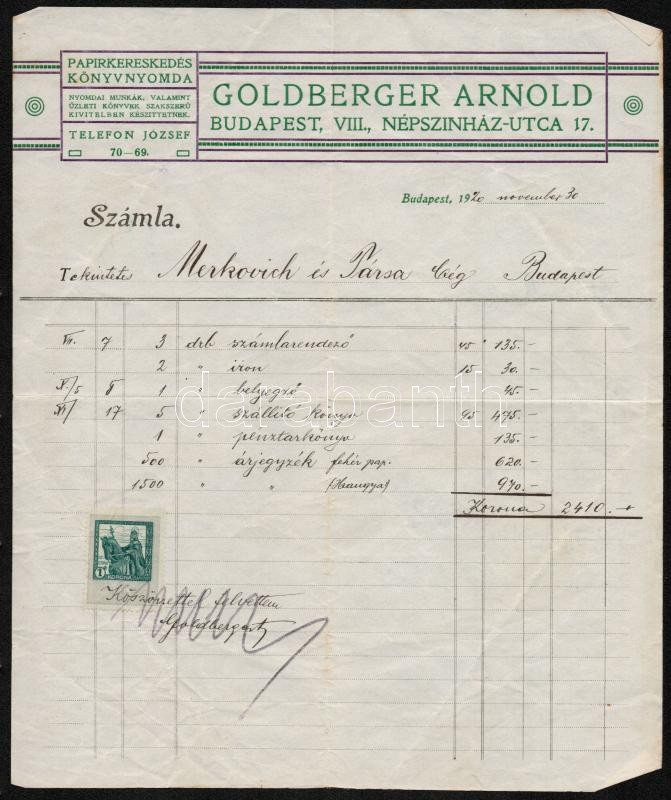 PAPIRKERESKEDÉS
KÖNYVNYOMDA
NYOMDAI MUNKÁK, VALAMINT
ÜZLETI KÖNYVEK SZAKSZERŰ
KIVITELBEN KÉSZITTETNEK.
TELEFON JÓZSEF
70—69.
GOLDBERGER ARNOLD
BUDAPEST, VIII., NÉPSZINHÁZ-UTCA 17.
Budapest, 1920 november 30
Számla.
Tekintetes Merkovich és Társa Cég Budapest
VII. 7 3 drb számlarendező 45 " 135.—
2 " iron 15 30.—
1 " belyegző 45.—
XI/ 17 5 " szállító könyv 95 475.—
1 " pénztárkönyv 135.—
500 " árjegyzék fehér pap. 620.—
1500 " " 970.—
Korona 2410.—
darabanth
1
KORONA
Köszönettel felvettem